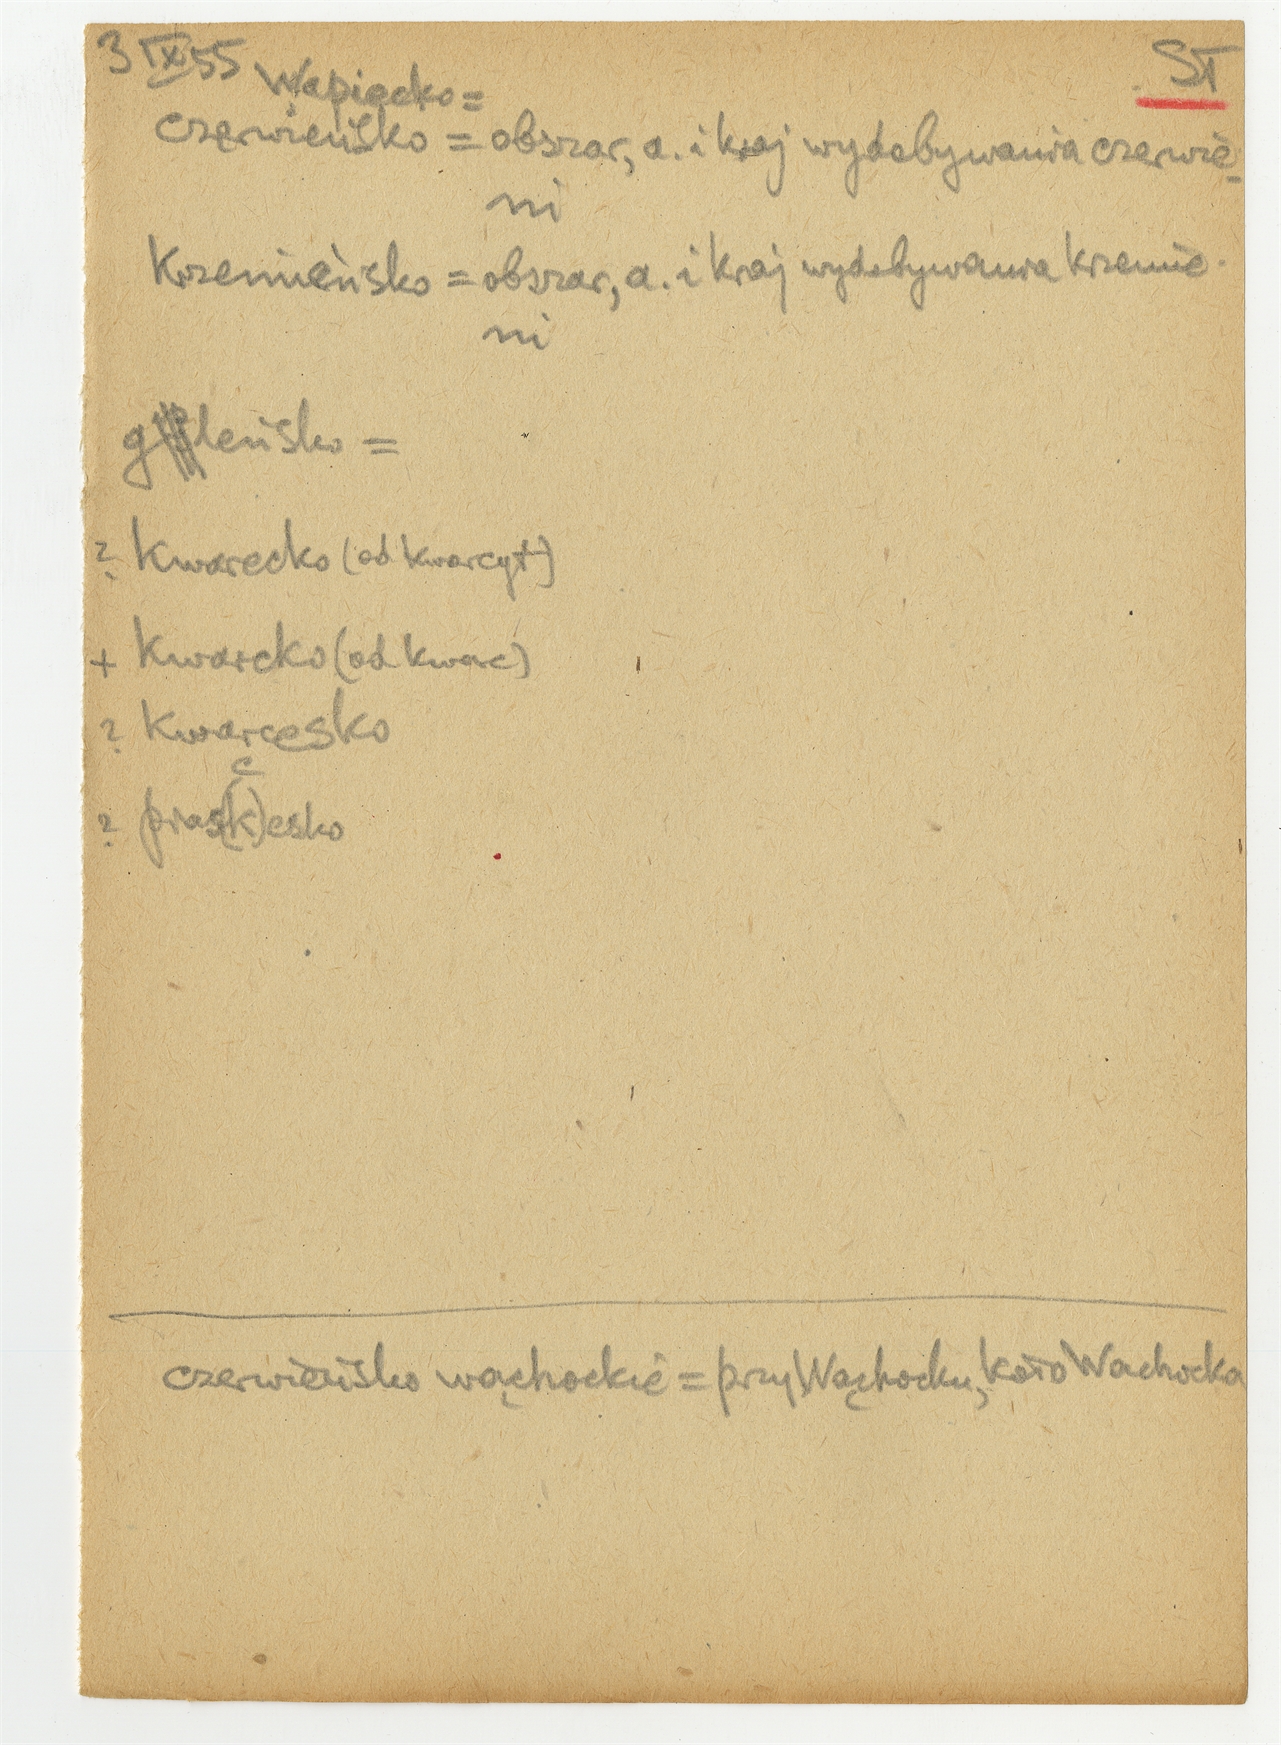 3 IX 55
ST
Wapiecko =
czerwieńsko = obszar, a. i kraj wydobywania czerwie-
ni
krzemieńsko = obszar, a. i kraj wydobywania krzemie-
ni
gleńsko =
? kwarecko (od kwarcyt)
+ kwarcko (od kwarc)
? kwarcesko
c
? pias(k)esko
czerwieńsko wąchockie = przy Wąchocku, koło Wachocka